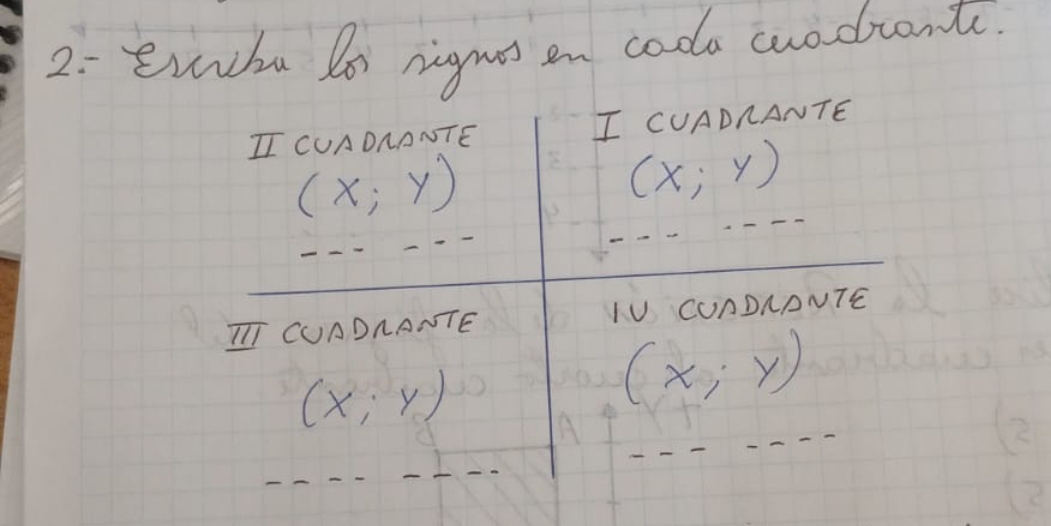 2.- Escriba los signos en cada cuadrante.
II CUADRANTE
(X; Y)
--- ---
I CUADRANTE
(X; Y)
--- ----
III CUADRANTE
(X; Y)
---- ----
IV CUADRANTE
(X; Y)
--- ----